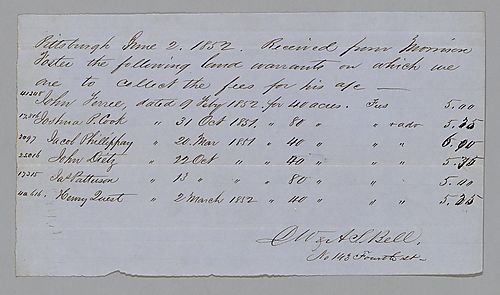 Pittsburgh June 2, 1852. Received from Morrison
Foster the following land warrants on which we
are to collect the fees for his a/c —
John Feree, dated 9 Feby 1852, for 40 acres. Fees 5.00
Joshua P. Cook " 31 Oct 1851, " 80 " " 5.35
Jacob Phillippay " 20. Mar 1851 " 40 " "
John Dietz " 22 Oct " " 40 " "
17315 Jas Patterson " 13 " " " 80 " " 5.
Henry Quest " 2 March 1852 " 40 " " 5.35
W & A S Bell.
No 143 Fourth st.